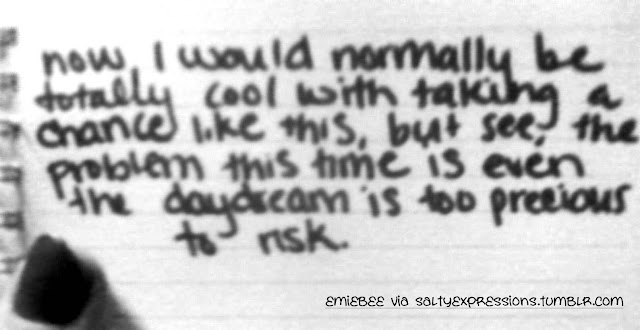 now, I would normally be
totally cool with taking a
chance like this, but see, the
problem this time is even
the daydream is too precious
to risk.
EMIEBEE via SALTYEXPRESSIONS.TUMBLR.COM